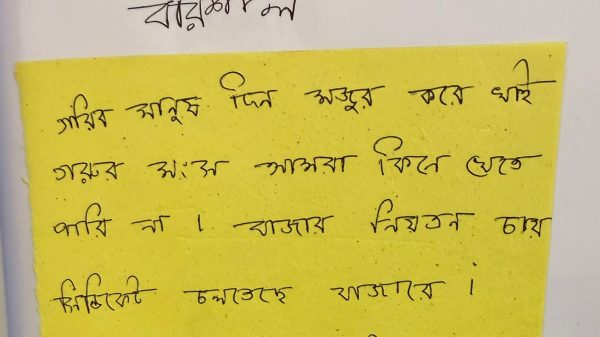 বরিশাল
গরিব মানুষ দিন মজুর করে খাই
গরুর মংস আমরা কিনে খেতে
পারি না । বাজার নিয়তন চায়
সিন্ডিকেট চলতেছে বাজারে ।